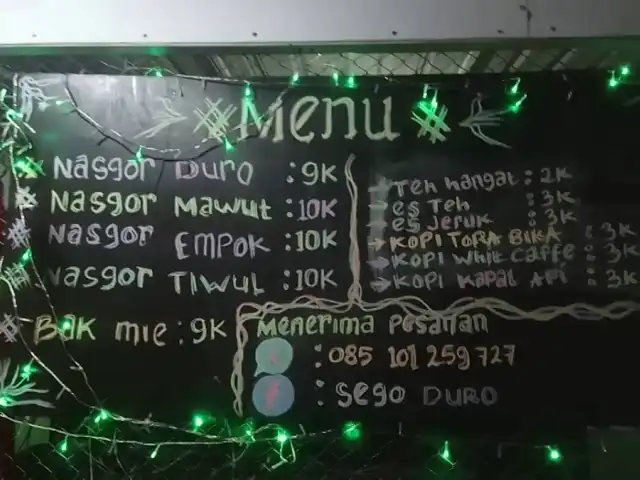 #Menu#
Nasgor Duro : 9K
Nasgor Mawut : 10K
Nasgor EMPOK : 10K
Nasgor TIWUL : 10K
Bak mie : 9K
Teh hangat : 2K
es Teh : 3K
es jeruk : 3K
KOPI TORA BIKA : 3K
KOPI Whit Caffe : 3K
KOPI Kapal API : 3K
Menerima Pesanan
: 085 101 259 727
: Sego DURO